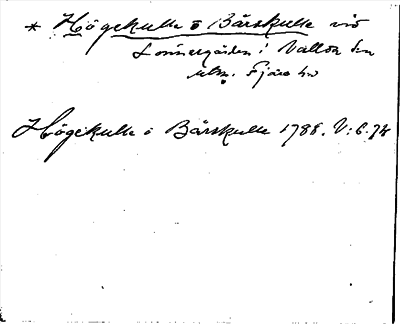 * Högekulle o Bårskulle vid
Lonnegården i Vallda sn
utm. Fjäre hd
Högekulle o Bårskulle 1788. V:6.74